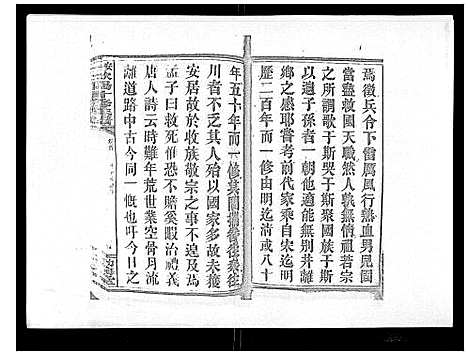 焉徵兵令下雷厲風行熱血男兒固
當盡救國天職然人孰無情祖若宗
之所謂歌于斯哭于斯聚國族于斯
以遺子孫者一朝他適能無別井離
鄉之感耶嘗考前代家乘自宋迄明
歷二百年而一修由明迄清或八十
年五十年而一修其間
川者不乏其人殆以國家多故未獲
安居故於收族敬宗之大不遑及焉
孟子曰救死惟恐不贍奚暇治禮義
唐人詩云時難年荒世業空骨月流
離道路中古今同一慨也吁今日之